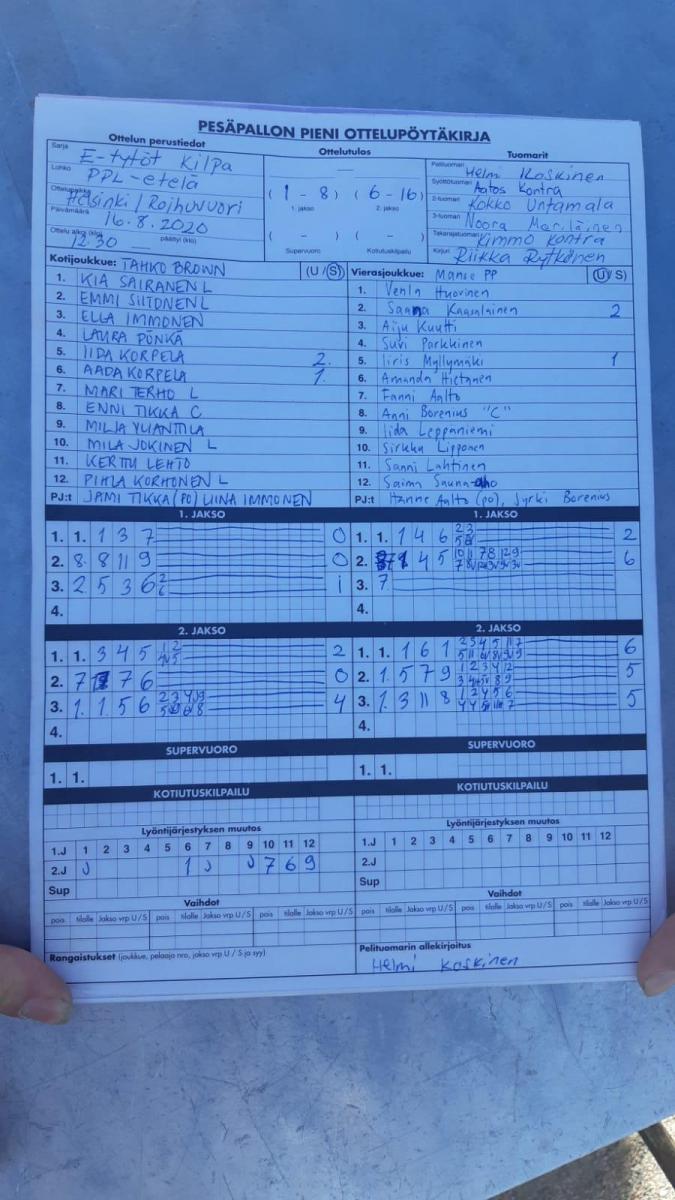 PESÄPALLON PIENI OTTELUPÖYTÄKIRJA
Ottelun perustiedot
Sarja E-tytöt Kilpa
Lohko PPL-etelä
Ottelupaikka Helsinki / Roihuvuori
Päivämäärä 16.8.2020
Ottelu alkoi (klo) 12.30 päättyi (klo)
Ottelutulos
( 1 - 8 ) ( 6 - 16 )
1. jakso 2. jakso
( - ) ( - )
Supervuoro Kotiutuskilpailu
Tuomarit
Pelituomari Helmi Koskinen
Syöttötuomari Aatos Kontra
2-tuomari Kokko Untamala
3-tuomari Noora Meriläinen
Takarajatuomari Kimmo Kontra
Kirjuri Riikka Rytkönen
Kotijoukkue: TAHKO BROWN (U / S)
1. KIA SAIRANEN L
2. EMMI SIITONEN L
3. ELLA IMMONEN
4. LAURA PÖNKÄ
5. IIDA KORPELA 2.
6. AADA KORPELA 1.
7. MARI TERHO L
8. ENNI TIKKA C
9. MILJA YLIANTTILA
10. MILA JOKINEN L
11. KERTTU LEHTO
12. PIHLA KORHONEN L
PJ:t JAMI TIKKA (PO) LIINA IMMONEN
Vierasjoukkue: Manse PP (U / S)
1. Venla Huovinen
2. Sanna Kaasalainen 2
3. Aiju Kuutti
4. Suvi Parkkinen
5. Iiris Myllymäki 1
6. Amanda Hietanen
7. Fanni Aalto
8. Anni Borenius "C"
9. Iida Leppäniemi
10. Sirkku Lipponen
11. Sanni Lahtinen
12. Saima Sauna-aho
PJ:t Hanne Aalto (po), Jyrki Borenius
1. JAKSO
1. 1. 1 3 7 0
2. 8. 8 11 9 0
3. 2 5 3 6 1
4.
1. JAKSO
1. 1. 1 4 6 2
2. 1 4 5 6
3. 7
4.
2. JAKSO
1. 1. 3 4 5 2
2. 7 7 6 0
3. 1. 1 5 6 4
4.
2. JAKSO
1. 1. 1 6 1 6
2. 1. 5 7 9 5
3. 1. 3 11 8 5
4.
SUPERVUORO
1. 1.
SUPERVUORO
1. 1.
KOTIUTUSKILPAILU
KOTIUTUSKILPAILU
Lyöntijärjestyksen muutos
1.J 1 2 3 4 5 6 7 8 9 10 11 12
2.J J 1 J J 7 6 9
Sup
Lyöntijärjestyksen muutos
1.J 1 2 3 4 5 6 7 8 9 10 11 12
2.J
Sup
Vaihdot
pois tilalle Jakso vrp U / S pois tilalle Jakso vrp U / S pois tilalle Jakso vrp U / S
Vaihdot
pois tilalle Jakso vrp U / S pois tilalle Jakso vrp U / S pois tilalle Jakso vrp U / S
Rangaistukset (joukkue, pelaaja nro, jakso vrp U / S ja syy)
Pelituomarin allekirjoitus
Helmi Koskinen